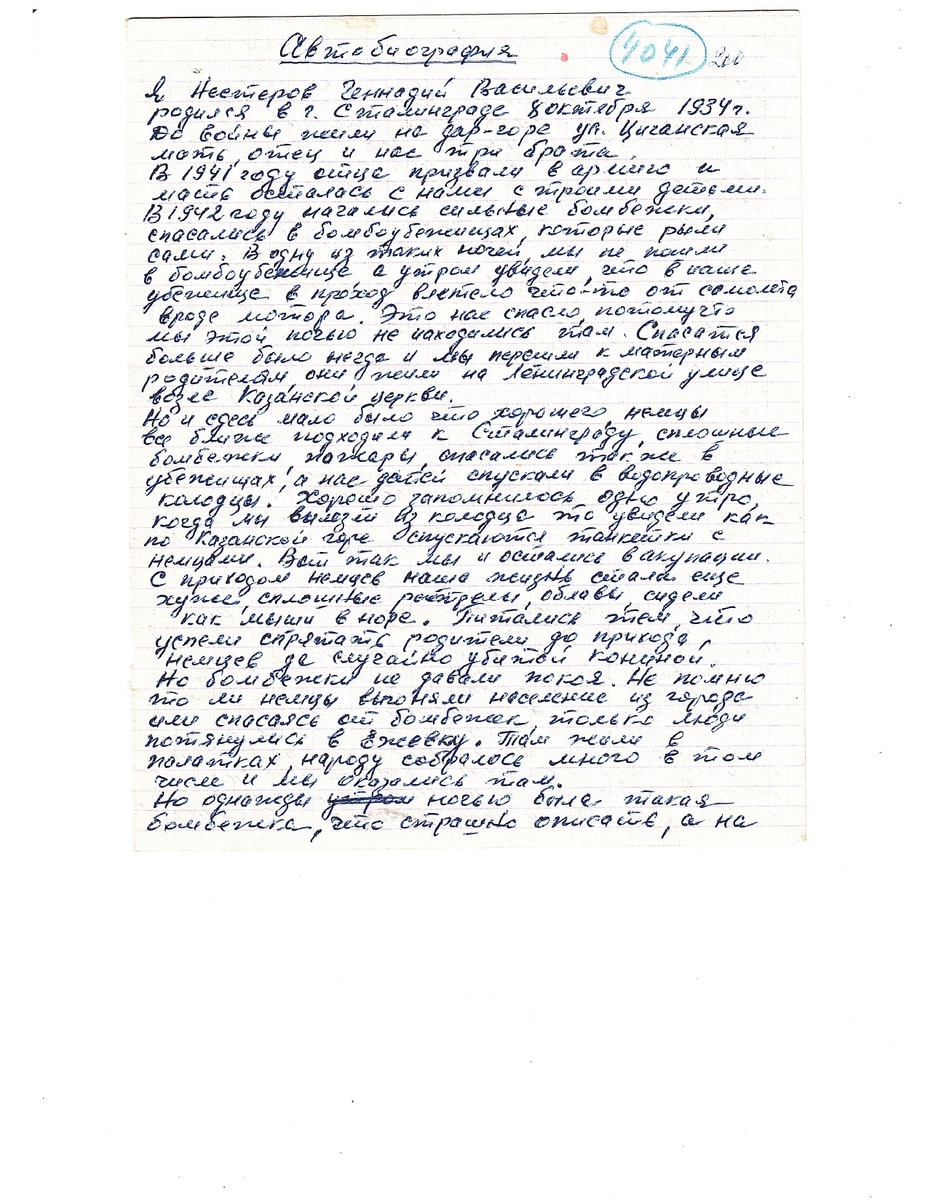 Автобиография
4041
200
Я Нестеров Геннадий Васильевич
родился в г. Сталинграде 8 октября 1934 г.
До войны жили на дар-горе ул. Циганская
мать, отец и нас три брата.
В 1941 году отца призвали в армию и
мать осталась с нами с троими детьми.
В 1942 году начались сильные бомбежки,
спасались в бомбоубежищах, которые рыли
сами. В одну из таких ночей, мы не пошли
в бомбоубежище а утром увидели, что в наше
убежище в проход влетело что-то от самолета
вроде мотора. Это нас спасло, потомучто
мы этой ночью не находились там. Спасатся
больше было негда и мы перешли к матерным
родителям, они жили на Ленинградской улице
возле Казанской церкви.
Но и сдесь мало было что хорошего, немцы
все ближе подходили к Сталинграду, сплошные
бомбежки пожары, спасались также в
убежищах, а нас детей спускали в водопроводные
колодцы. Хорошо запомнилось одно утро,
когда мы вылезли из колодца то увидели как
по Казанской горе спускаются танкетки с
немцами. Вот так мы и остались в акупации.
С приходом немцев наша жизнь стала еще
хуже, сплошные растрелы, облавы, сидели
как мыши в норе. Питались тем, что
успели спрятать родители до прихода
немцев да случайно убитой кониной.
Но бомбежки не давали покоя. Не помню
то ли немцы выгоняли население из города
или спасаясь от бомбежек, только люди
потянулись в Ежевку. Там жили в
палатках, народу собралось много в том
числе и мы оказались там.
Но однажды утром ночью была такая
бомбежка, что страшно описать, а на